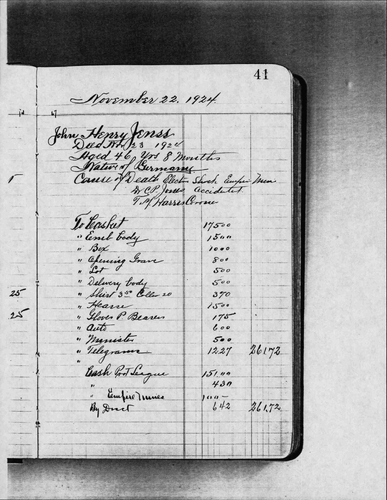 41
November 22, 1924
John Henry Jenss
Died Nov 23 1924
Aged 46 Yrs 8 Months
Native of Germany
Cause of Death Electric Shock Empire Mine
Accidental
To Casket 175 00
" Emb body 15 00
" Box 10 00
" Opening Grave 8 00
" Lot 5 00
" Delivery body 5 00
25 " Shirt 3 50 Collar 20 3 70
" Hearse 15 00
25 " Gloves P Bearers 1 75
" Auto 6 00
" Minister 5 00
" Telegrams 12 27 261.72
Cash League 151 00
" 4 30
" Empire Mines 100 -
By Disct 6 42 261.72